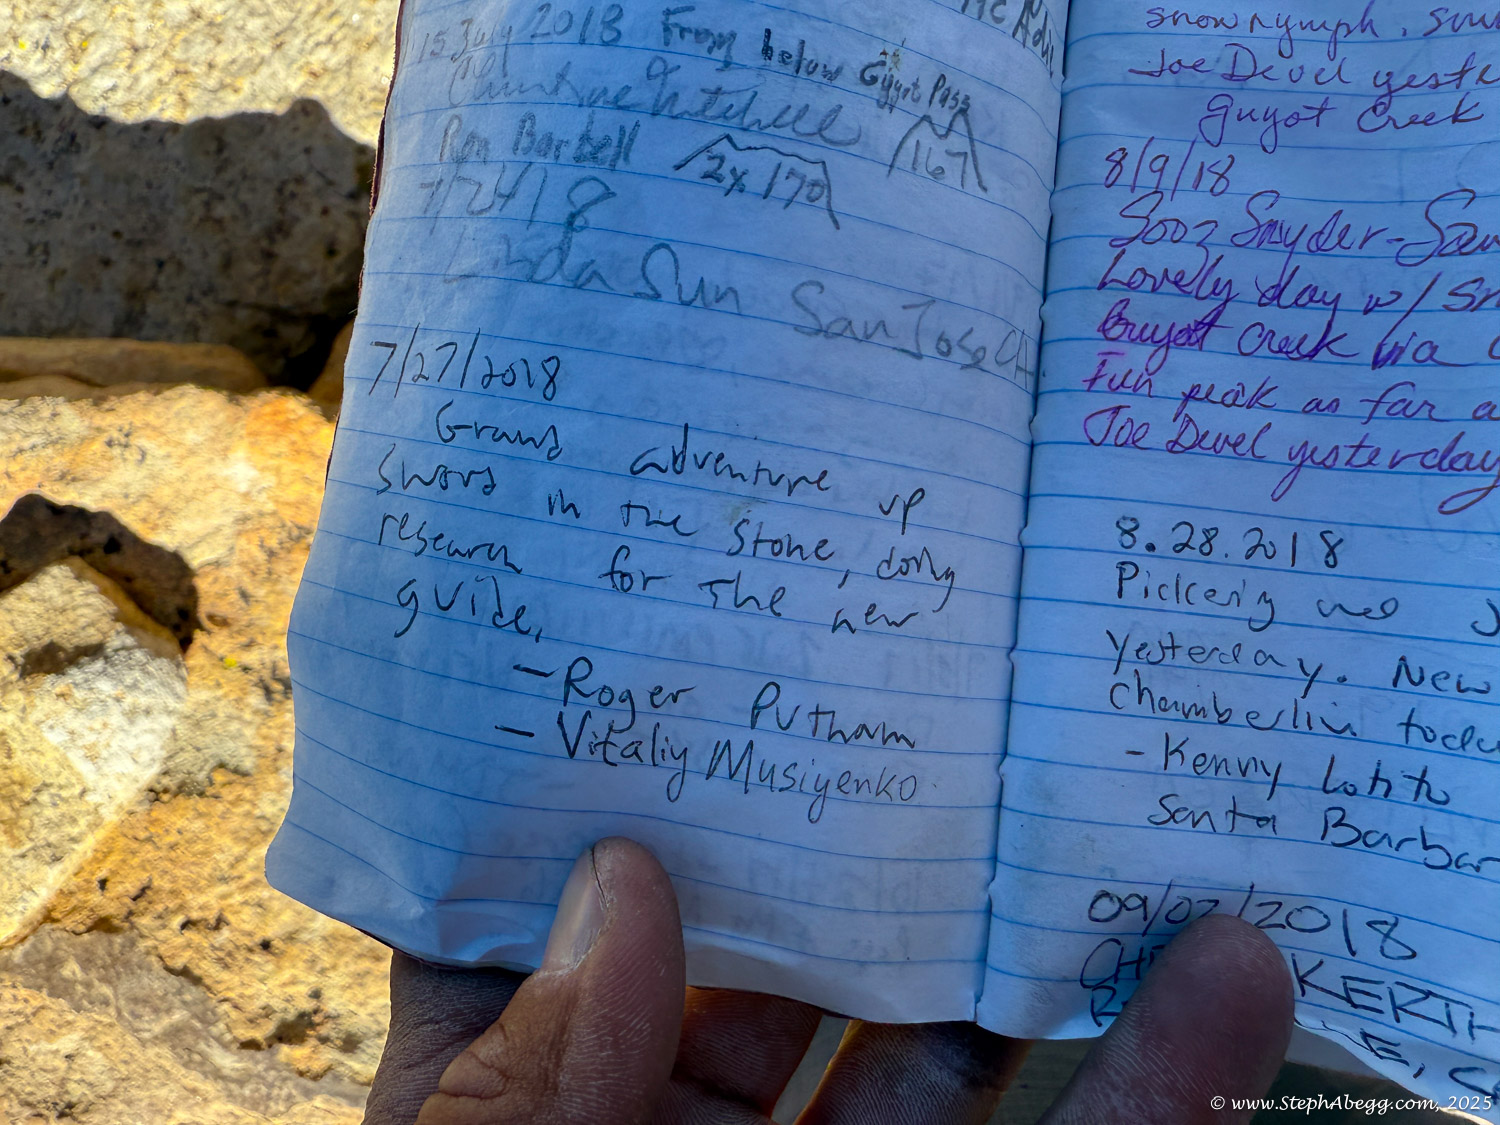 15 July 2018 From below Guyot Pass
Christine Mitchell
&
Ron Barbell 2x170 167
7/24/18
Linda Sun San Jose CA
7/27/2018
Grand adventure up
Sword in the Stone, doing
research for the new
guide.
– Roger Putnam
– Vitaliy Musiyenko
snow nymph.
Joe Devel
Guyot Creek
8/9/18
Sooz Snyder-
Lovely day w/
Guyot Creek via
Fun peak as far
Joe Devel yesterday
8.28.2018
Pickering and
yesterday. New
Chamberlin
- Kenny
Santa
2018
© www.StephAbegg.com, 2025